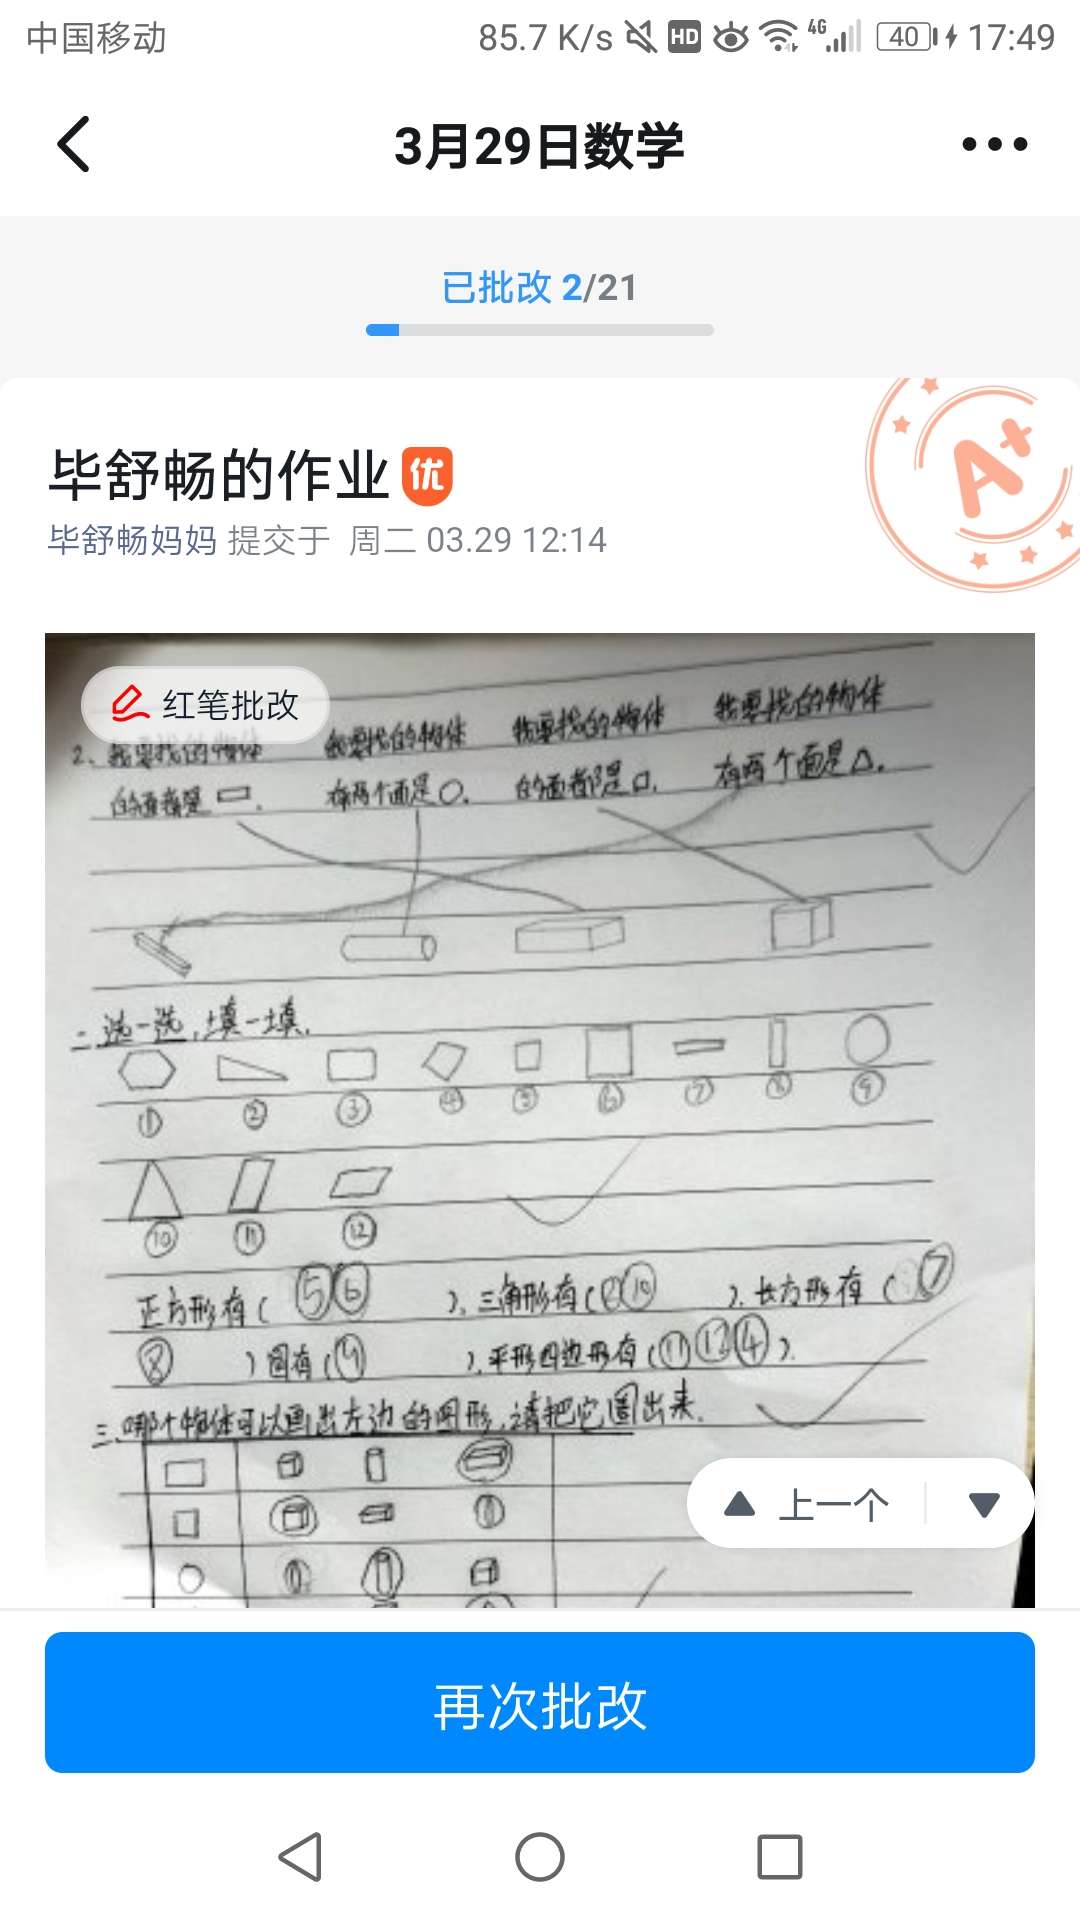 中国移动 85.7 K/s HD 4G 40 17:49
3月29日数学
已批改 2/21
A+
毕舒畅的作业 优
毕舒畅妈妈 提交于 周二 03.29 12:14
红笔批改
2、我要找的物体 我要找的物体 我要找的物体 我要找的物体
的面都是 有两个面是 的面都是 有两个面是
二、选一选,填一填.
① ② ③ ④ ⑤ ⑥ ⑦ ⑧ ⑨
⑩ ⑪ ⑫
正方形有( ⑤⑥ ),三角形有(②⑩ ),长方形有( ⑦
⑧ )圆有(⑨ ),平形四边形有(⑪⑫④).
三、哪个物体可以画出左边的图形,请把它圈出来.
上一个
再次批改